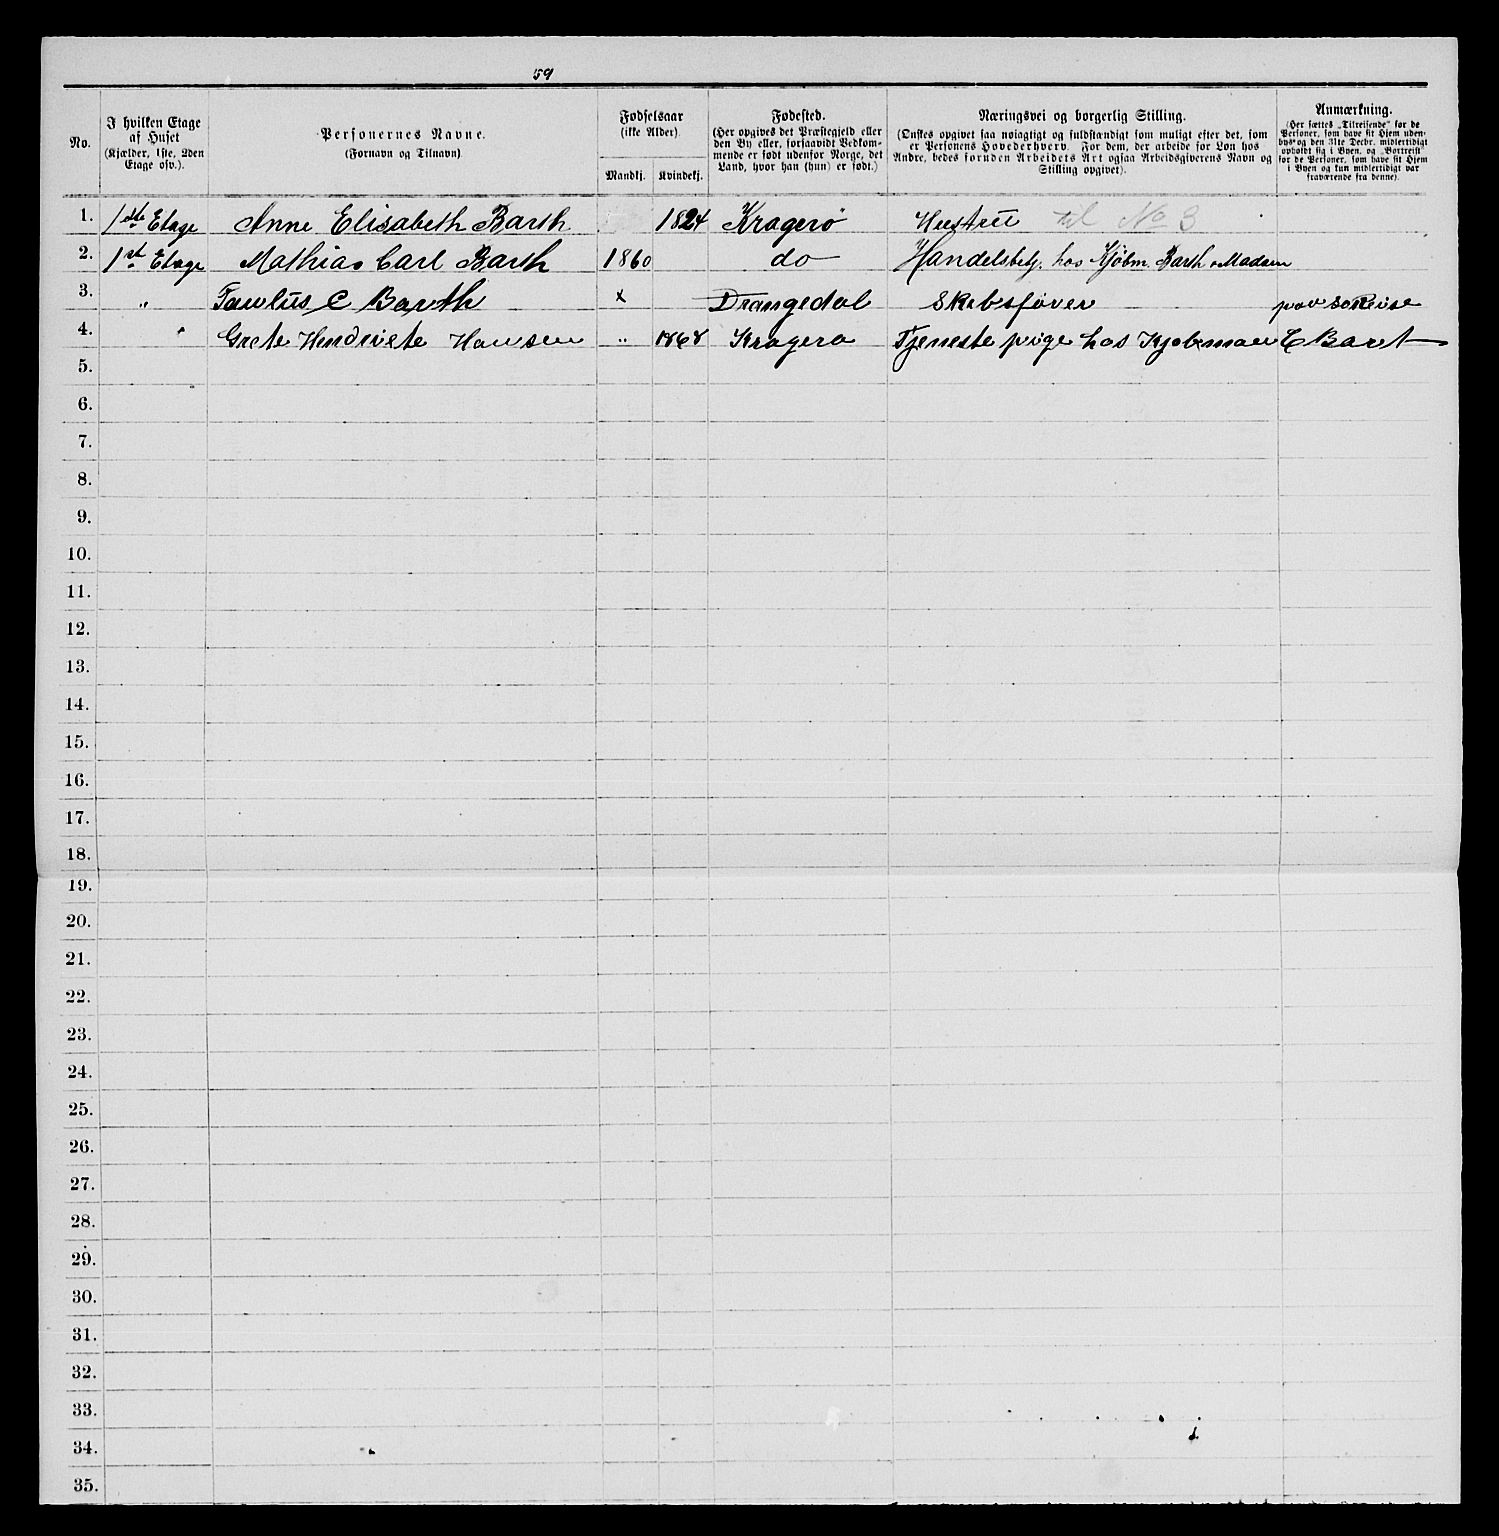 59
No.
I hvilken Etage
af Huset
(Kjælder, 1ste, 2den
Etage osv.).
Personernes Navne.
(Fornavn og Tilnavn)
Fødselsaar
(ikke Alder)
Mandkj. Kvindekj.
Fødested.
(Her opgives det Præstegjeld eller
den By eller, forsaavidt Vedkom-
mende er født udenfor Norge, det
Land, hvor han (hun) er født.)
Næringsvei og borgerlig Stilling.
(Ønskes opgivet saa nøiagtigt og fuldstændigt som muligt efter det, som
er Personens Hovederhverv. For dem, der arbeide for Løn hos
Andre, bedes foruden Arbeidets Art ogsaa Arbeidsgiverens Navn og
Stilling opgivet).
Anmærkning.
(Her sættes „Tilreisende" for de
Personer, som have sit Hjem uden-
bys og den 31te Decbr. midlertidigt
opholdt sig i Byen, og „Bortreist"
for de Personer, som have sit Hjem
i Byen og kun midlertidigt var
fraværende fra denne).
1. 1ste Etage Anne Elisabeth Barth 1824 Kragerö Hustru til No 3
2. 1ste Etage Mathias Carl Barth 1860 do Handelsbetj. hos Kjøbm. Barth Madam
3. „ Paulus C Barth x Drangedal Skibsfører paa soReise
4. " Grete Hendriete Hansen „ 1868 Kragerø Tjeneste pige hos Kjøbman C Baret
5.
6.
7.
8.
9.
10.
11.
12.
13.
14.
15.
16.
17.
18.
19.
20.
21.
22.
23.
24.
25.
26.
27.
28.
29.
30.
31.
32.
33.
34.
35.